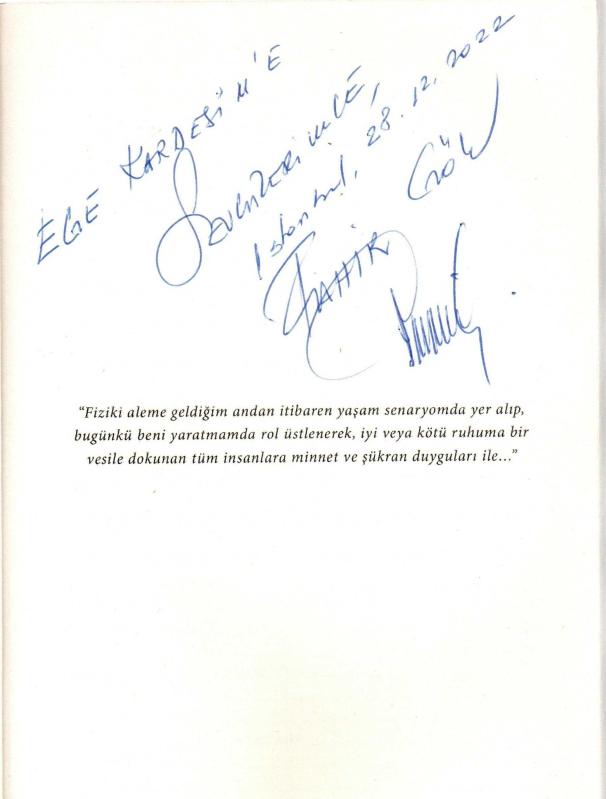 EGE KARDEŞİM'E
SEVGİLERİMLE,
Istanbul, 28.12.2022
TAHİR GÖK
“Fiziki aleme geldiğim andan itibaren yaşam senaryomda yer alıp,
bugünkü beni yaratmamda rol üstlenerek, iyi veya kötü ruhuma bir
vesile dokunan tüm insanlara minnet ve şükran duyguları ile…”